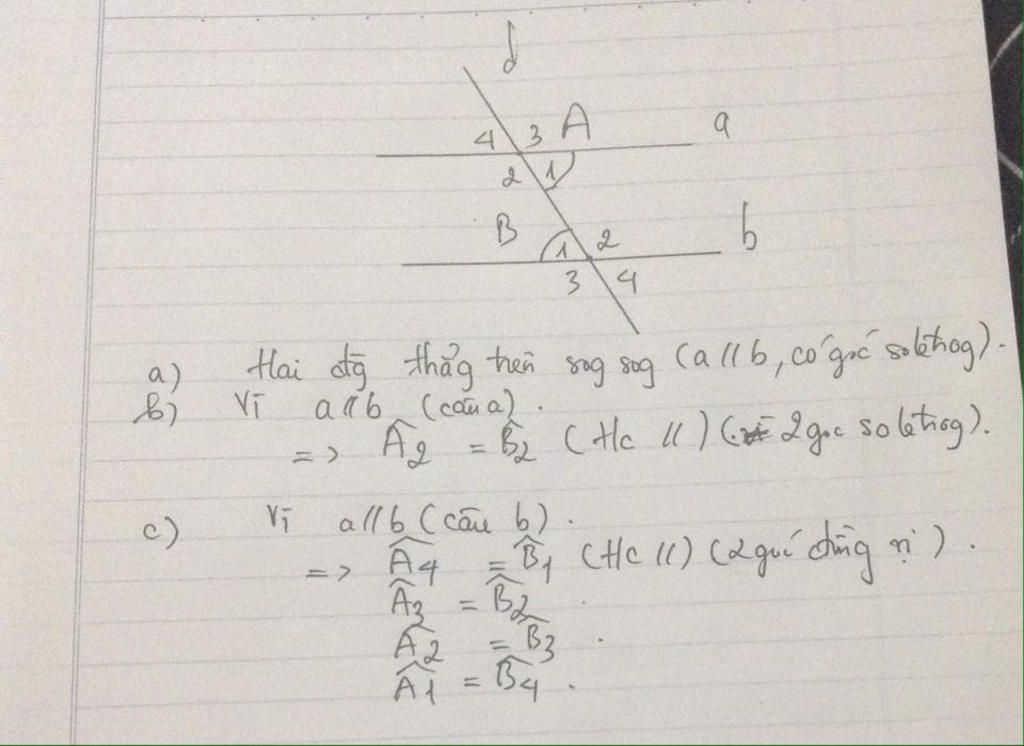 d
4 3 A a
2 1
B 1 2 b
3 4
a) Hai đg thẳg trên sog sog (a // b, có góc so le trog).
b) Vì a // b (câu a).
=> Â2 = B̂2 (t/c //) (2 góc so le trog).
c) Vì a // b (câu b).
=> Â4 = B̂1 (t/c //) (2 góc đồng vị).
Â3 = B̂2
Â2 = B̂3
Â1 = B̂4.